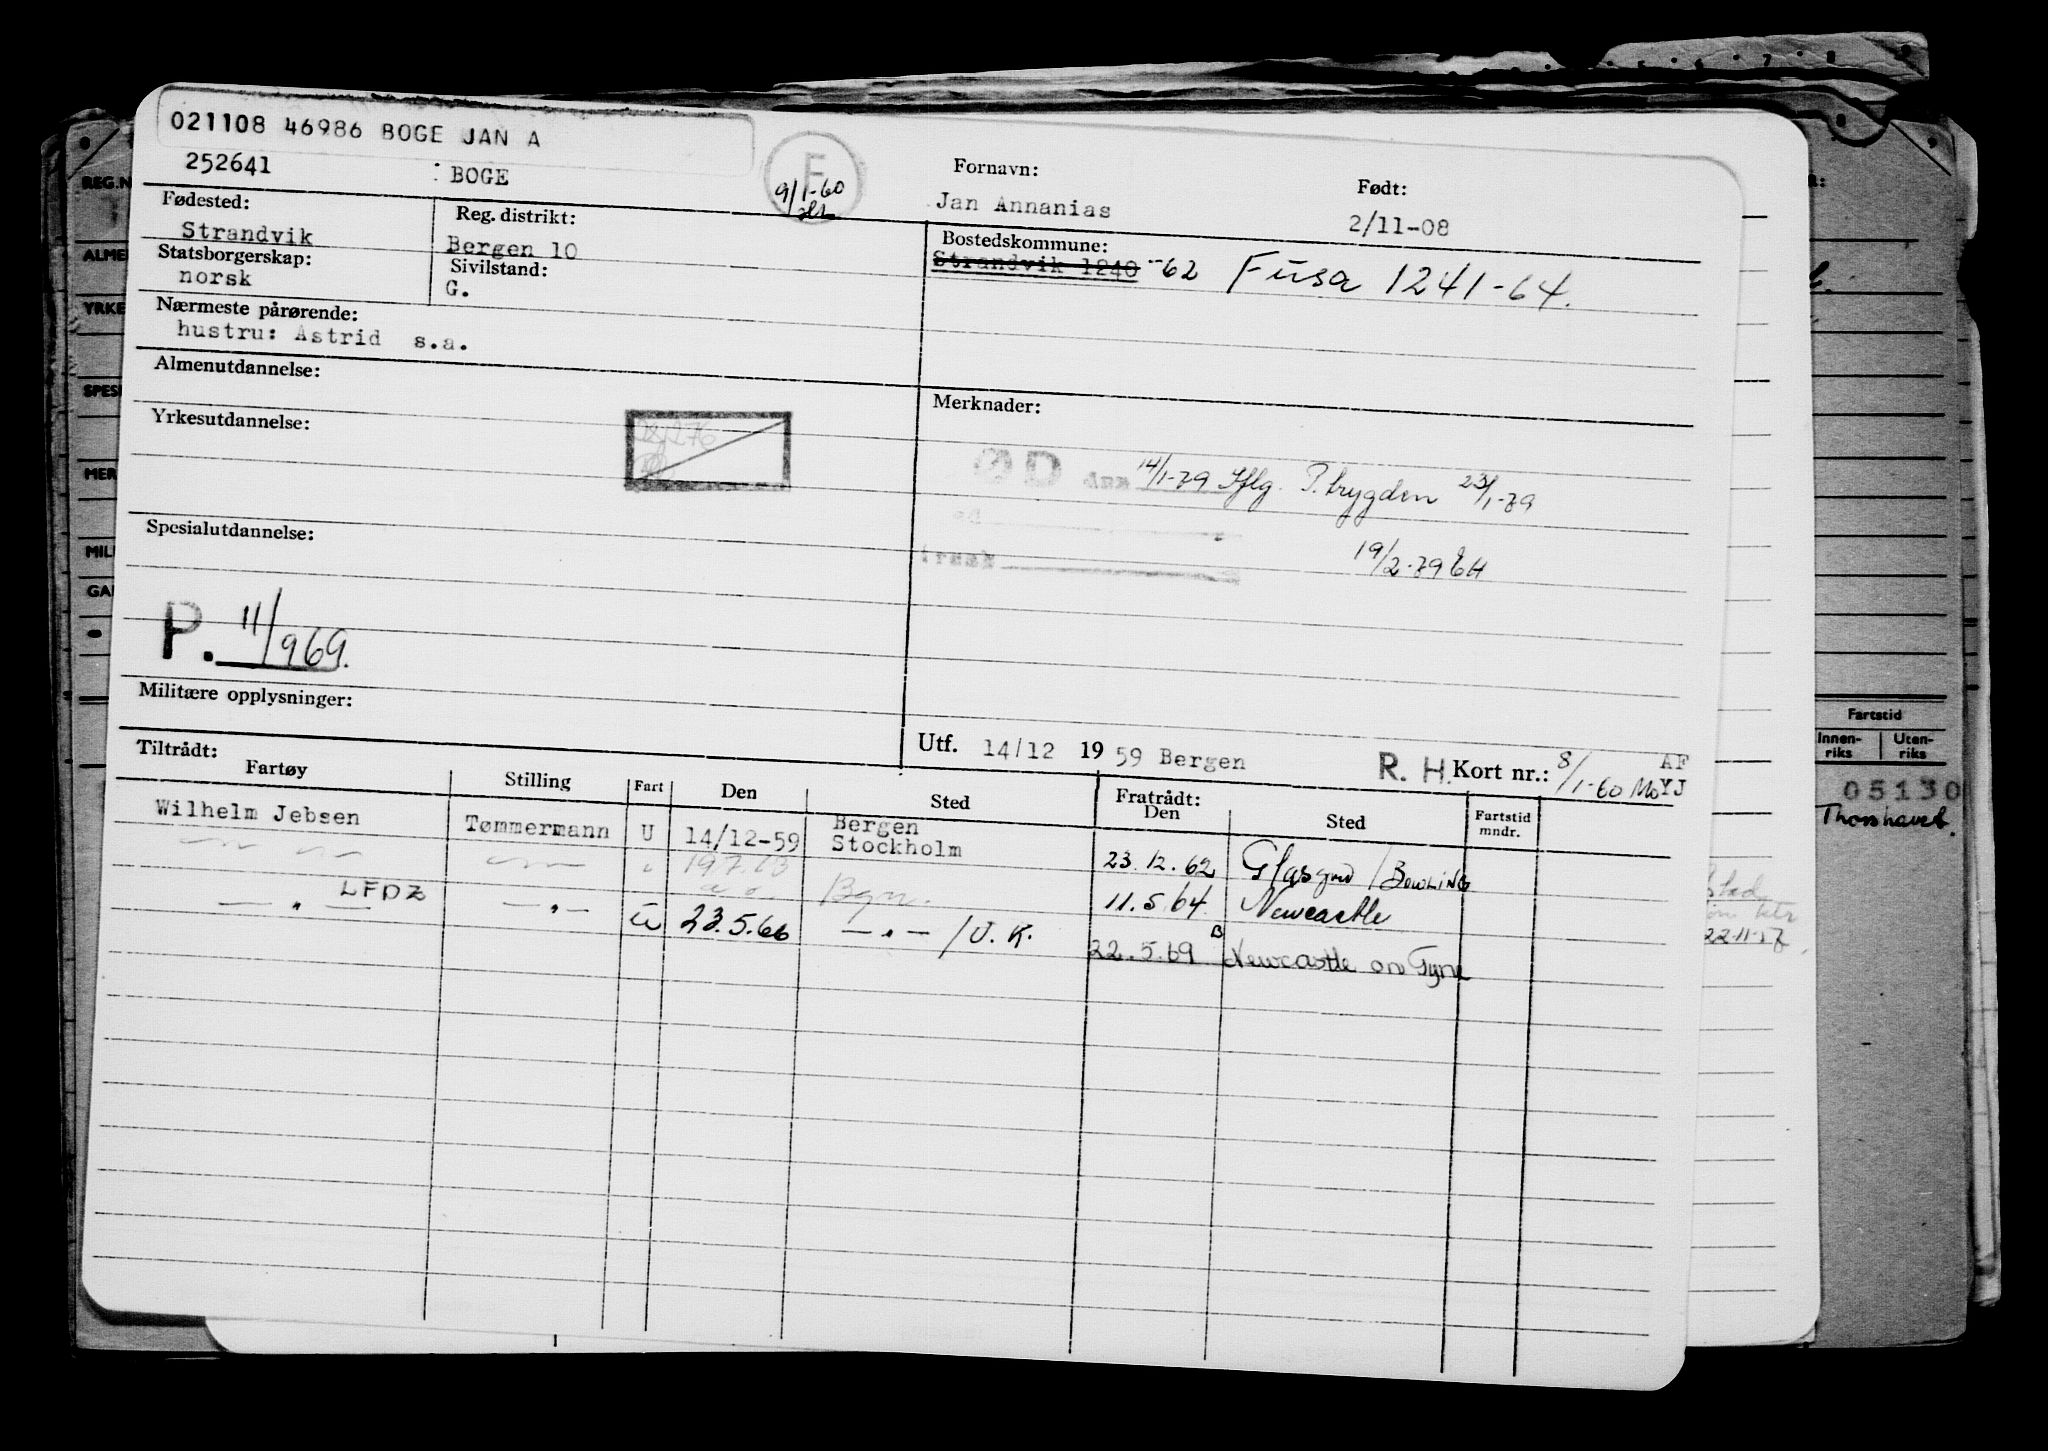 021108 46986 BOGE JAN A
252641 : BOGE
F
9/1-60
Fornavn:
Jan Annanias
Født:
2/11-08
Fødested:
Strandvik
Reg. distrikt:
Bergen 10
Bostedskommune:
Strandvik 1240 -62 Fusa 1241-64.
Statsborgerskap:
norsk
Sivilstand:
G.
Nærmeste pårørende:
hustru: Astrid s.a.
Almenutdannelse:
Yrkesutdannelse:
Merknader:
D 14/1-79 Iflg. P. trygden 23/1-79
19/2-79 EH
Spesialutdannelse:
P. 11/969.
Militære opplysninger:
Utf. 14/12 1959 Bergen R. H. Kort nr.: 8/1-60 Mo AF
YJ
Tiltrådt:
Fartøy Stilling Fart Den Sted Fratrådt: Den Sted Fartstid mndr.
Wilhelm Jebsen Tømmermann U 14/12-59 Bergen
Stockholm 23.12.62 Glasgow / BOWLING
— " — — " — " 19.7.63 Bgn. 11.5.64 Newcastle
LFDZ
— " — — " — U 23.5.66 — " — / U.K. 22.5.69 B Newcastle on Tyne
REG.N
ALME
YRKE
SPESI
MER
MILI
GA
Fartstid
Innen-
riks
Uten-
riks
05130
Thorshavet.
22-11-57